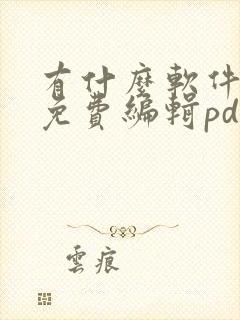 有什麼軟件
免費編輯pd
雲痕